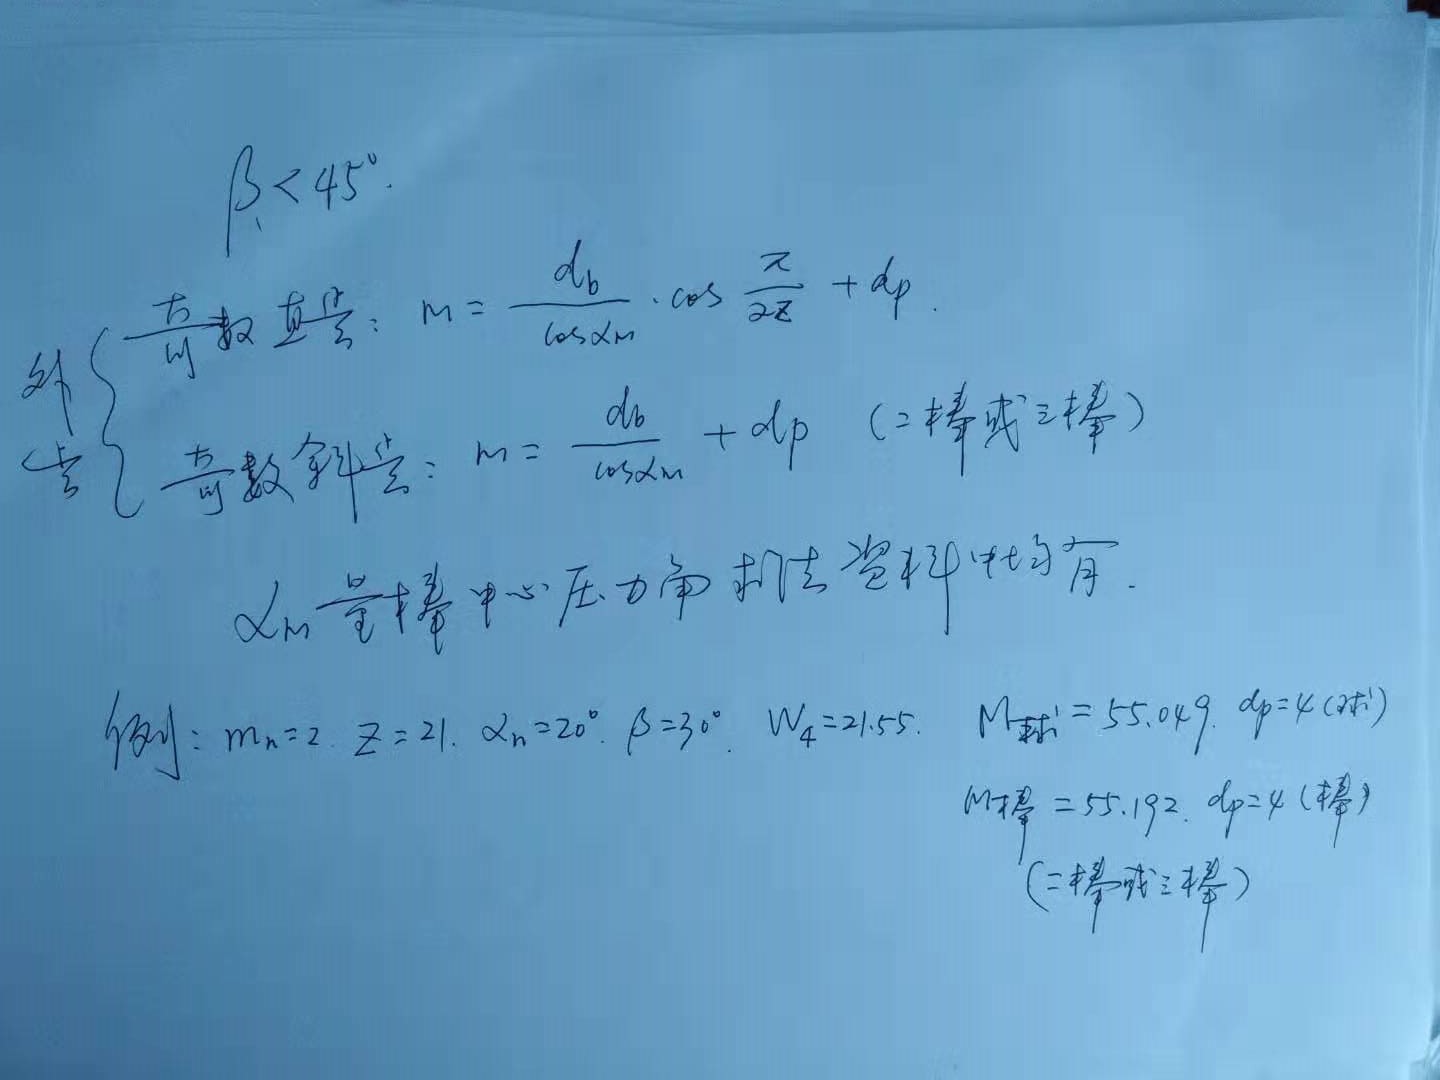 β<45°.
外齿
奇数直齿: M = db/cosαm · cos π/2z + dp.
奇数斜齿: M = db/cosαm + dp (二棒或三棒)
αm 量棒中心压力角 机法资料中均有.
例: mn=2. Z=21. αn=20°. β=30°. W4=21.55. M球=55.049. dp=4(球)
M棒=55.192. dp=4(棒)
(二棒或三棒)